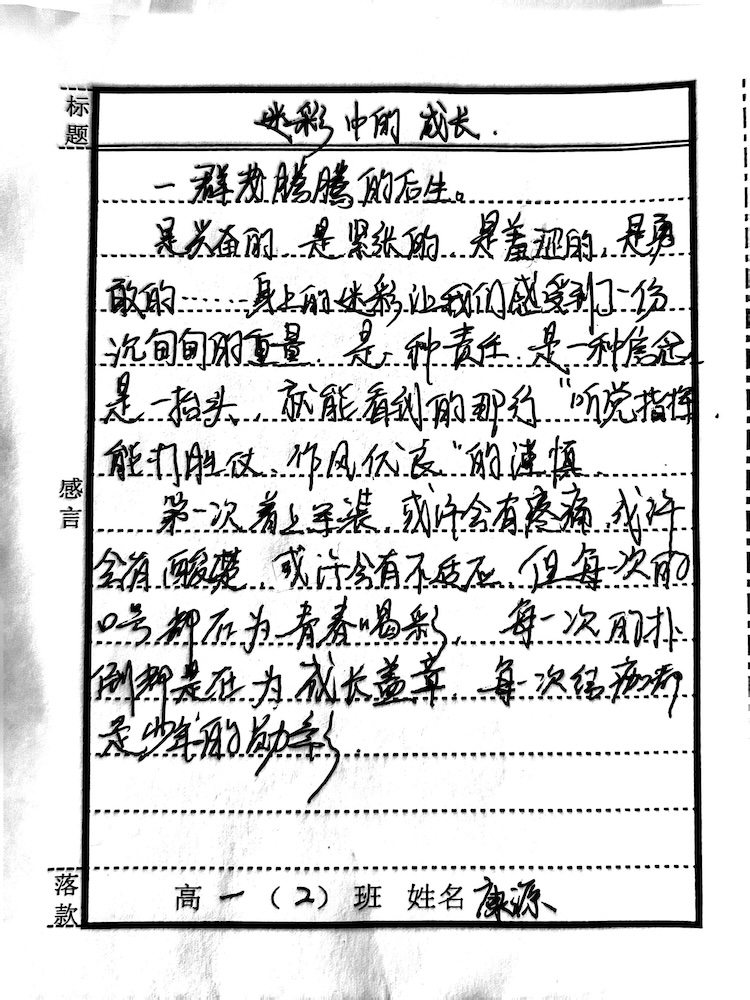 标题
迷彩中的成长.
一群热腾腾的后生。
是兴奋的、是紧张的、是羞涩的、是勇
敢的……身上的迷彩让我们感受到了一份
沉甸甸的重量、是一种责任、是一种信念、
是一抬头、就能看到的那行“听党指挥、
能打胜仗、作风优良”的谨慎、
感言
第一次着上军装、或许会有疼痛、或许
会有酸楚、或许会有不适应、但每一次的
口号都在为青春喝彩、每一次的扑
倒都是在为成长盖章、每一次结痂都
是少年的勋章.
落款
高一(2)班 姓名 康源